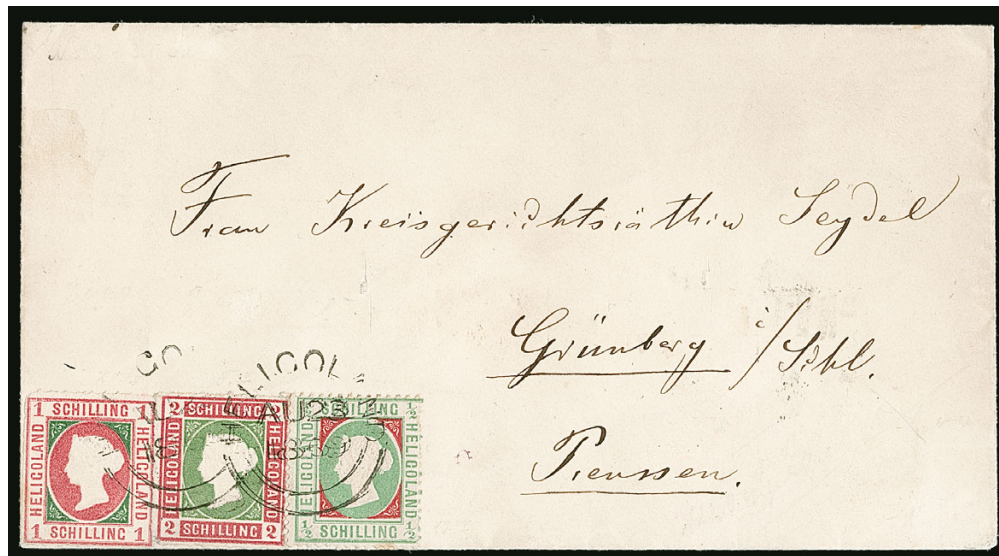 Frau Kreisgerichtsräthin Seydel
Grünberg i/Schl.
Preussen.
HELIGOLAND
AU 23
1 SCHILLING 1
HELIGOLAND
HELIGOLAND
1 SCHILLING 1
2 SCHILLING 2
HELIGOLAND
HELIGOLAND
2 SCHILLING 2
½ SCHILLING ½
HELIGOLAND
HELIGOLAND
½ SCHILLING ½